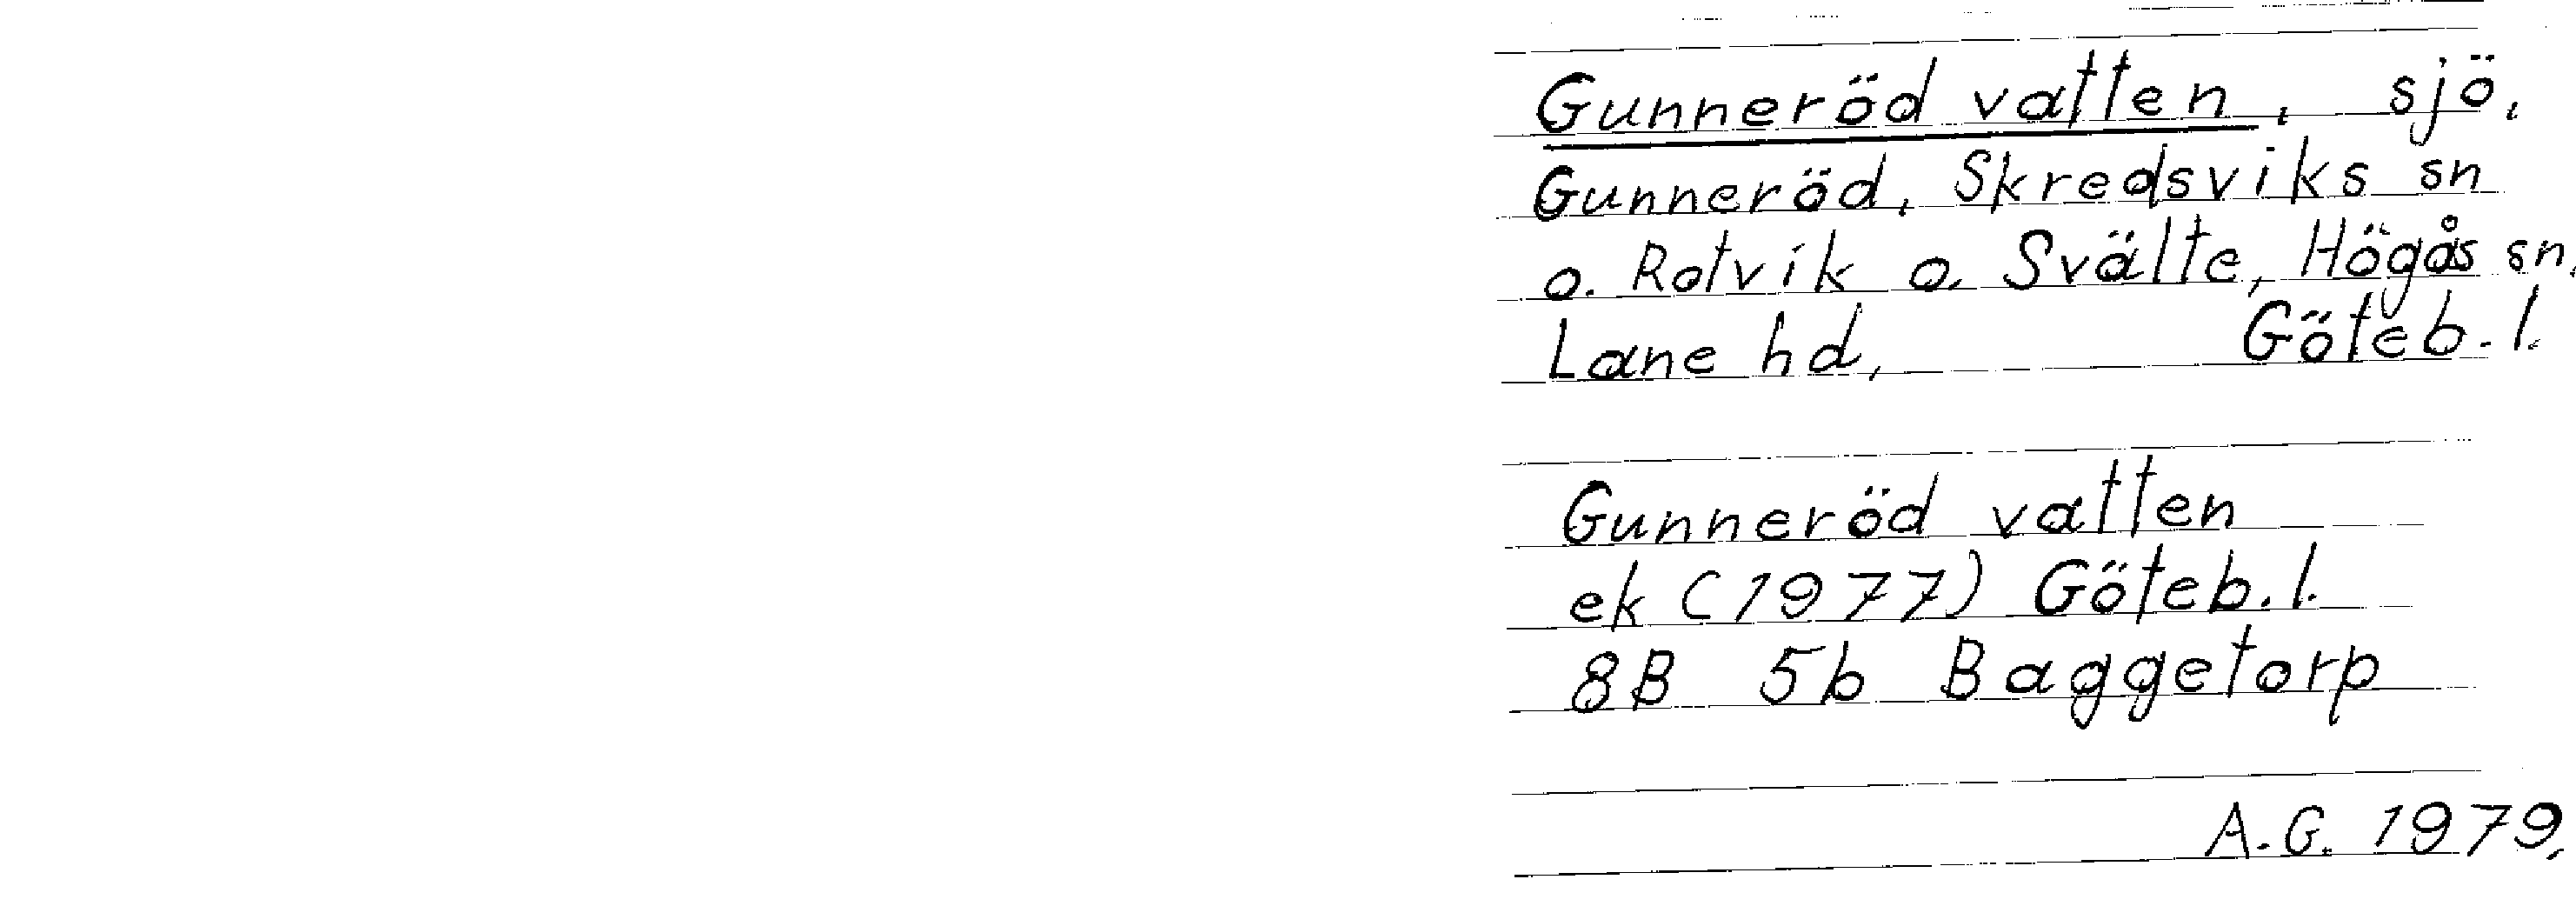 Gunneröd vatten, sjö,
Gunneröd, Skredsviks sn
o. Rotvik o. Svälte, Högås sn,
Lane hd, Göteb. l.
Gunneröd vatten
ek (1977) Göteb. l.
8B 5b Baggetorp
A.G. 1979.